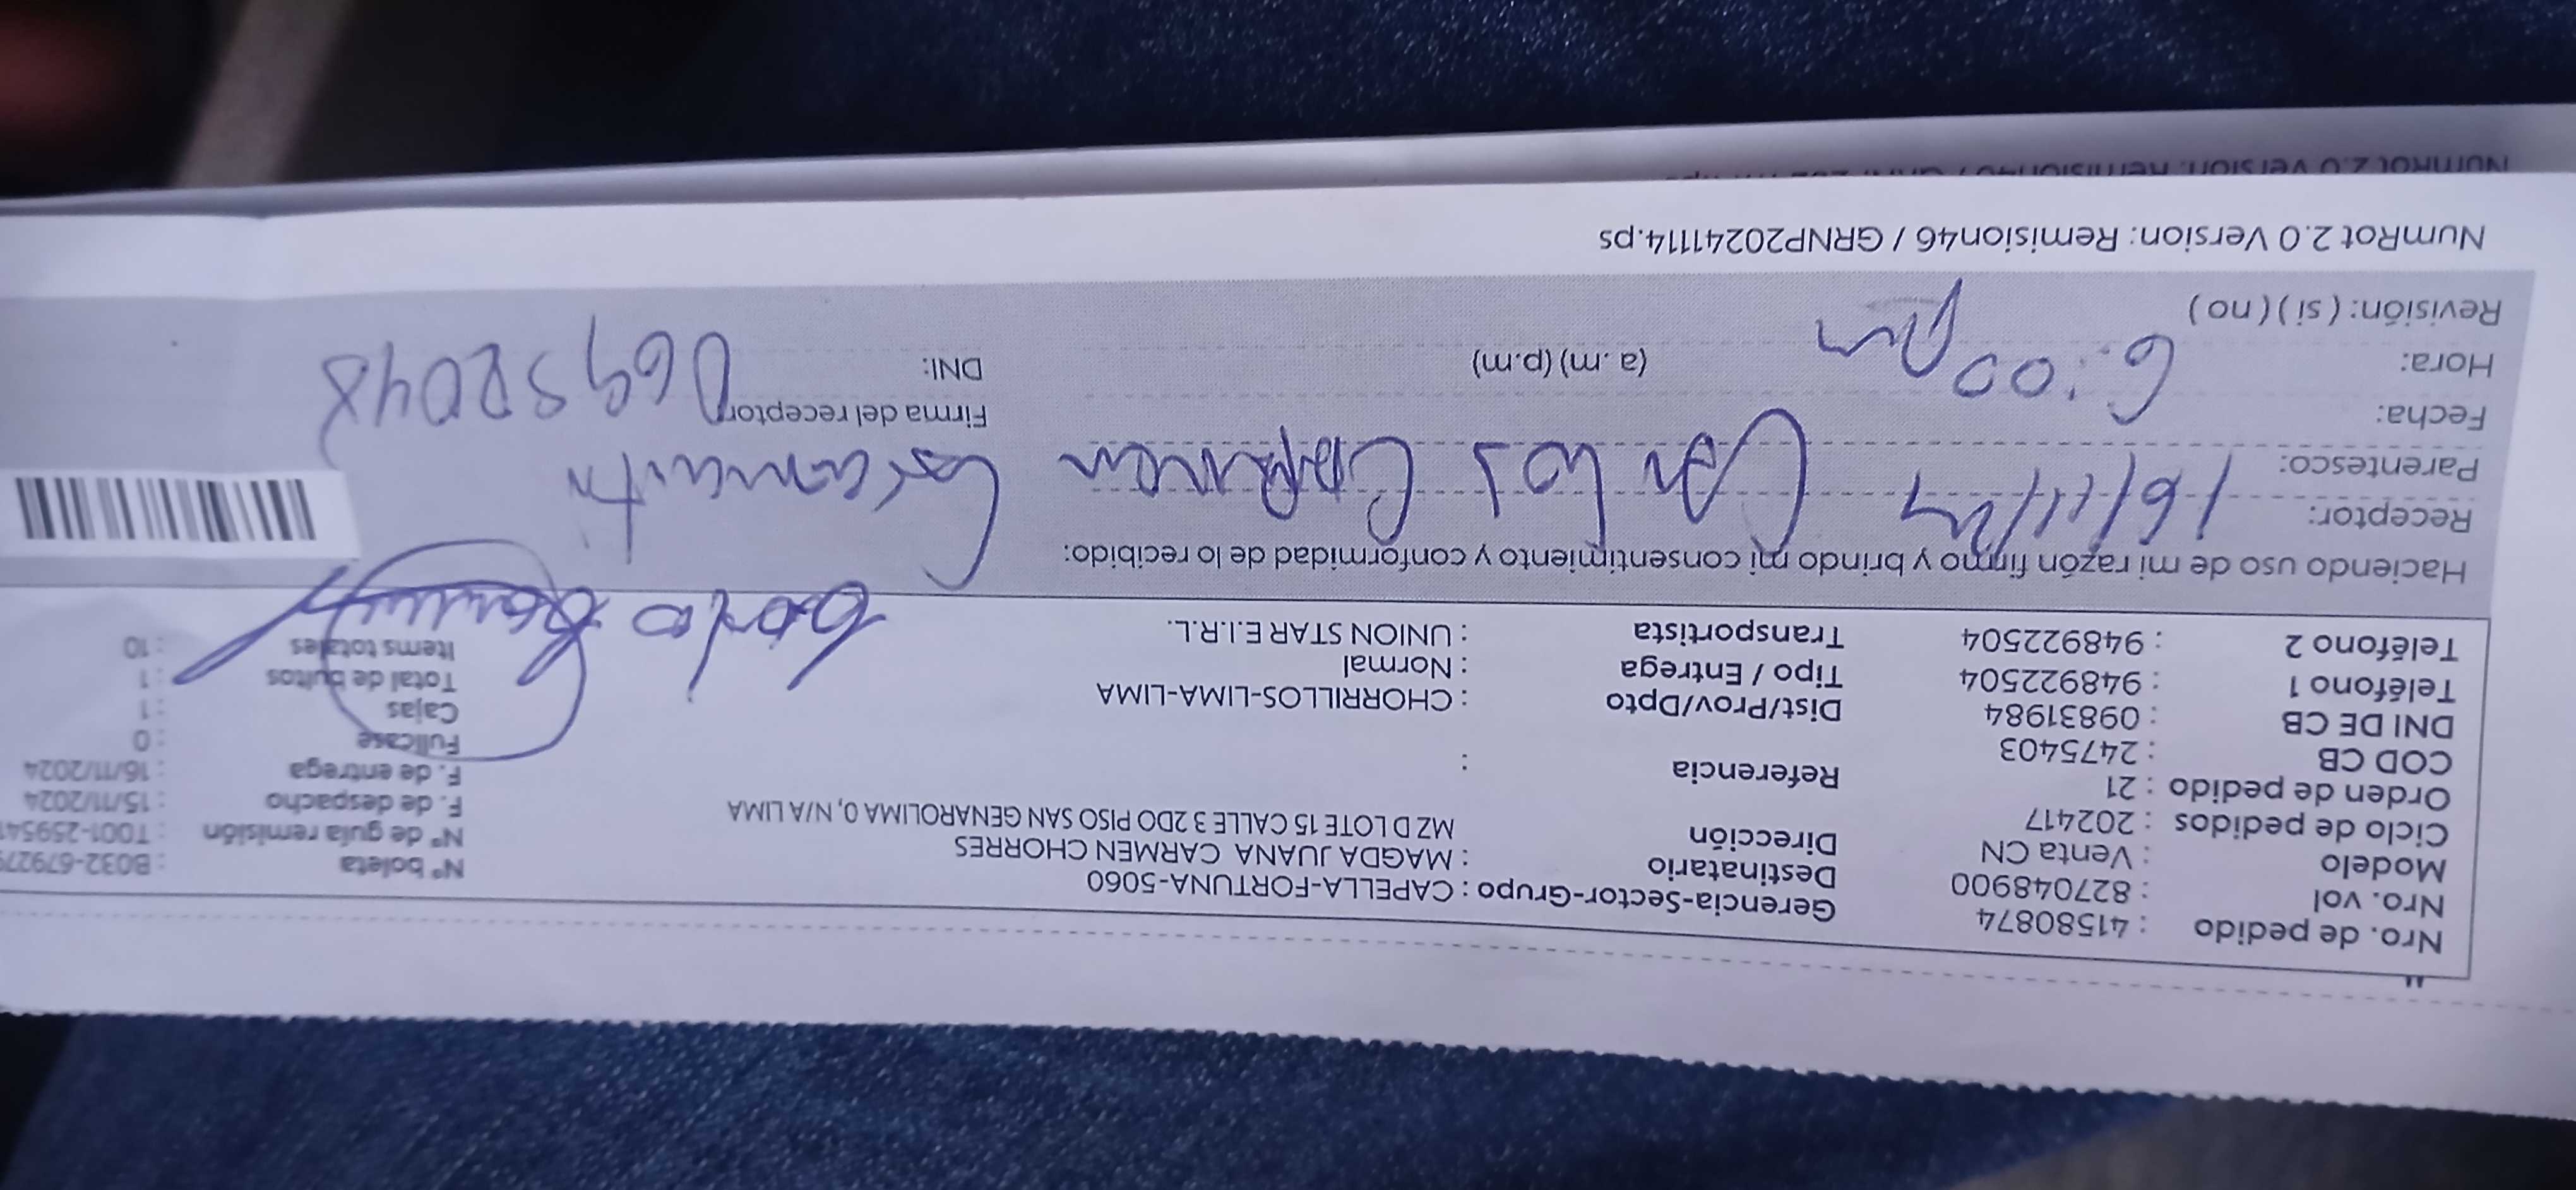 Nro. de pedido : 41580874
Nro. vol : 827048900
Modelo : Venta CN
Ciclo de pedidos : 202417
Orden de pedido : 21
COD CB : 2475403
DNI DE CB : 09831984
Teléfono 1 : 948922504
Teléfono 2 : 948922504
Gerencia-Sector-Grupo : CAPELLA-FORTUNA-5060
Destinatario : MAGDA JUANA CARMEN CHORRES
Dirección MZ D LOTE 15 CALLE 3 2DO PISO SAN GENAROLIMA 0, N/A LIMA
Referencia :
Dist/Prov/Dpto : CHORRILLOS-LIMA-LIMA
Tipo / Entrega : Normal
Transportista : UNION STAR E.I.R.L.
N° boleta : B032-679279
N° de guía remisión : T001-259541
F. de despacho : 15/11/2024
F. de entrega : 16/11/2024
Fullcase : 0
Cajas : 1
Total de bultos : 1
Items totales : 10
Haciendo uso de mi razón firmo y brindo mi consentimiento y conformidad de lo recibido:
Receptor:
16/11/24 Carlos Carmen
Parentesco:
Fecha:
Firma del receptor
Hora: 6:00 pm (a. m) (p.m)
DNI:
Revisión: ( si ) ( no )
NumRot 2.0 Version: Remision46 / GRNP20241114.ps